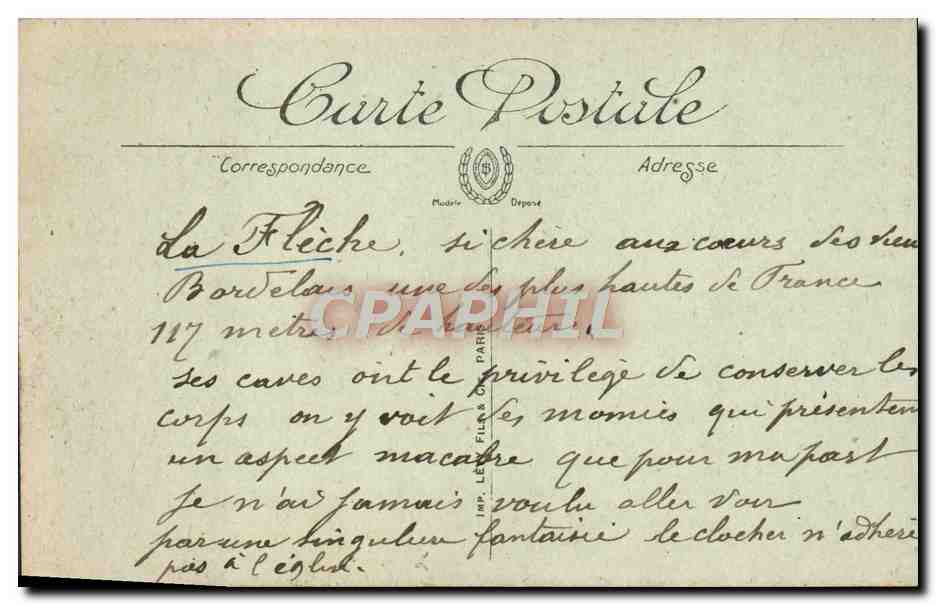 Carte Postale
Correspondance
Adresse
Modèle Déposé
La Flèche, si chère aux cœurs des vieu
Bordelais une des plus hautes de France
117 mètres de hauteur.
ses caves ont le privilège de conserver les
corps on y voit des momies qui présenten
un aspect macabre que pour ma part
je n'ai jamais voulu aller voir
par une singulière fantaisie le clocher n'adhère
pas à l'église.
IMP. LÉVY FILS & Cie PARIS
CPAPHIL